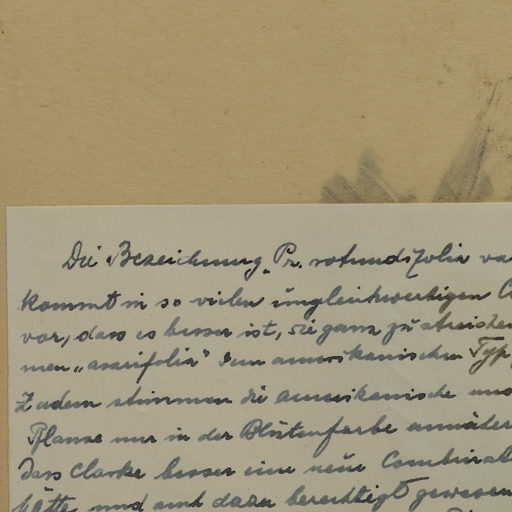 Die Bezeichnung „Pr. rotundifolia va
kommt in so vielen ungleichwertigen C
vor, dass es besser ist, sie ganz zu streichen
men „asarifolia" dem amerikanischen Typ
Zudem stimmen die amerikanische und
Pflanze nur in der Blütenfarbe annäher
dass Clarke besser eine neue Combinat
hätte und auch dazu berechtigt gewesen